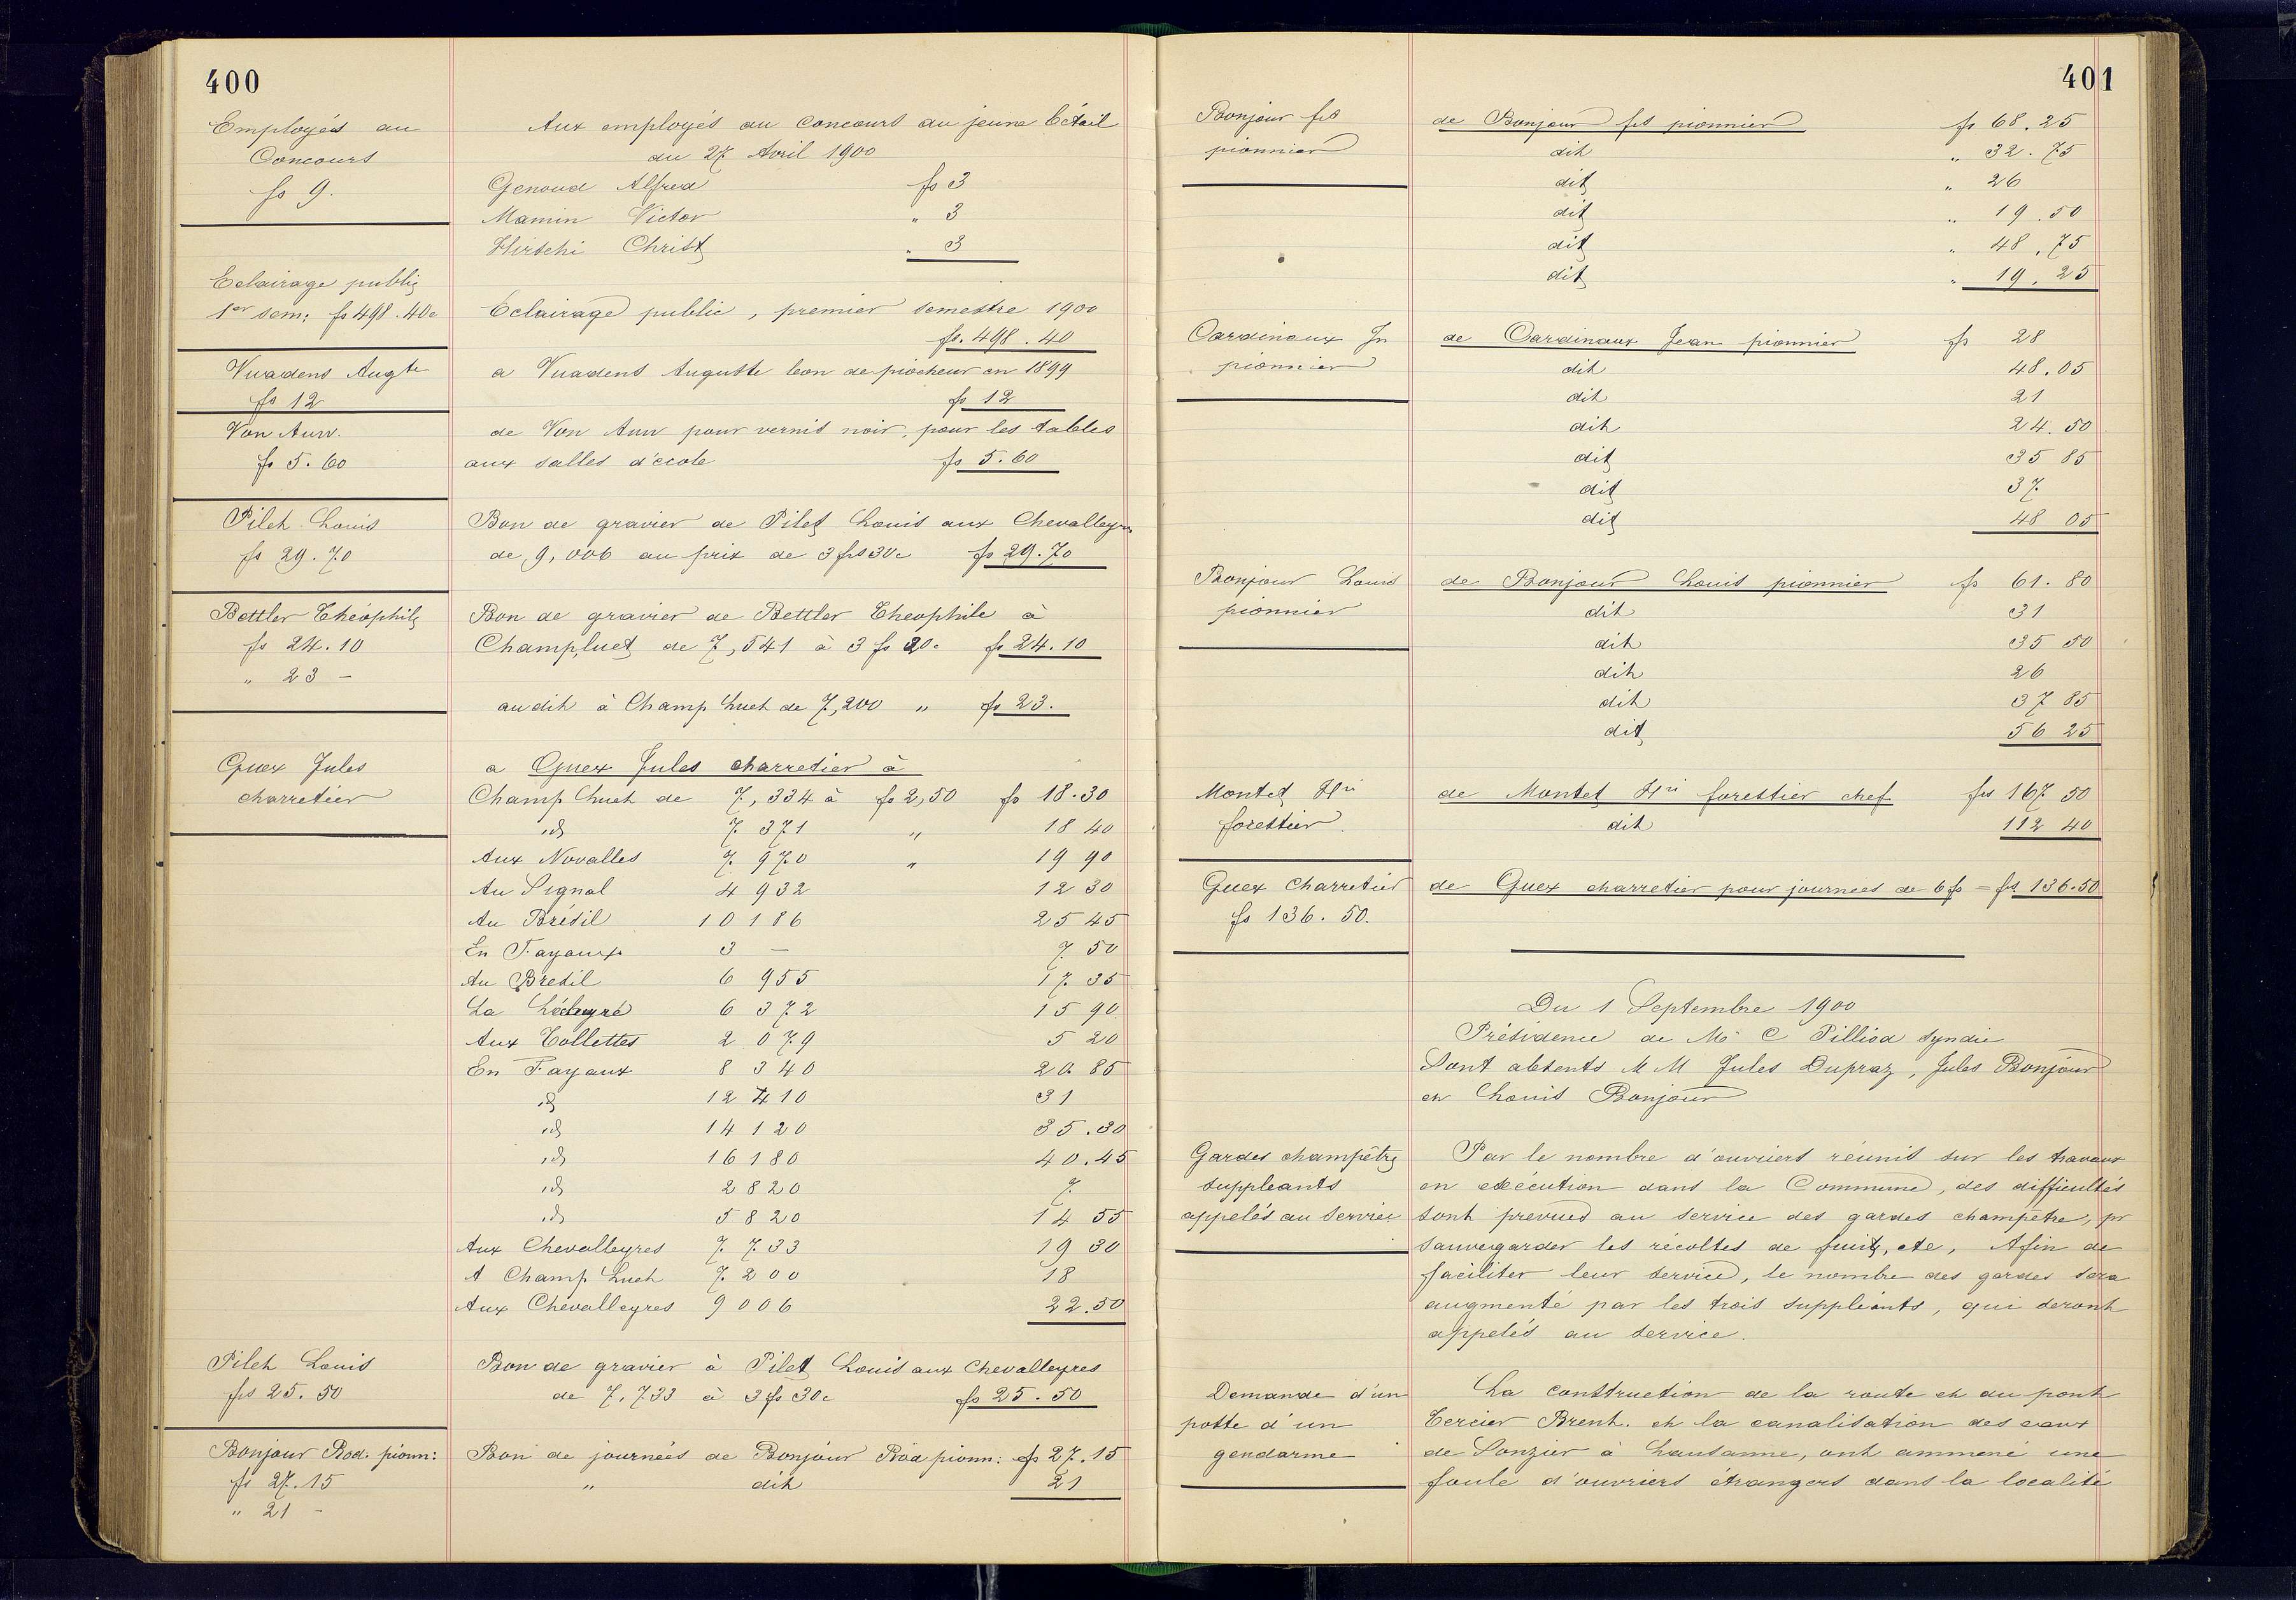 400
Employés au
Concours
fs 9.
Aux employés au concours du jeune bétail
du 27 Avril 1900
Genoud Alfred fs 3
Mamin Victor " 3
Hirschi Christ " 3
Eclairage public
1er sem: fs 498.40c
Eclairage public, premier semestre 1900
fs. 498.40
Vuadens Augte
fs 12
a Vuadens Auguste bon de piocheur en 1899
fs 12
Von Auw.
fs 5.60
de Von Auw pour vernis noir, pour les tables
aux salles d'école fs 5.60
Pilet Louis
fs 29.70
Bon de gravier de Pilet Louis aux Chevalleyres
de 9,006 au prix de 3 frs 30c fs 29.70
Bettler Théophile
fs 24.10
" 23 –
Bon de gravier de Bettler Theophile à
Champluet de 7,541 à 3 fs 20c fs 24.10
au dit à Champ Luet de 7,200 " fs 23.
Guex Jules
charretier
a Guex Jules charretier à
Champ Luet de 7,334 à fs 2,50 fs 18.30
id 7.371 " 18 40
Aux Novalles 7.970 " 19 90
Au Signal 4 932 12 30
Au Brésil 10 186 25 45
En Fayaux 3 – 7 50
Au Bresil 6 955 17 35
La 6 372 15 90
Aux Tollettes 2 079 5 20
En Fayaux 8 340 20 85
id 12 410 31
id 14 120 35.30
id 16 180 40.45
id 2 820 7.
id 5 820 14 55
Aux Chevalleyres 7.733 19 30
A Champ Luet 7.200 18
Aux Chevalleyres 9 006 22.50
Pilet Louis
frs 25.50
Bon de gravier à Pilet Louis aux Chevalleyres
de 7,733 à 3 fs 30c fs 25.50
Bonjour Rod. pionn:
fs 27.15
" 21 –
Bon de journées de Bonjour Rod pionn: fs 27.15
" dit 21
401
Bonjour fs
pionnier
de Bonjour fs pionnier fs 68.25
dit " 32.75
dit " 26
dit " 19.50
dit " 48.75
dit " 19.25
Cardinaux Jn
pionnier
de Cardinaux Jean pionnier fs 28
dit 48.05
dit 21
dit 24.50
dit 35 85
dit 37.
dit 48 05
Bonjour Louis
pionnier
de Bonjour Louis pionnier fs 61.80
dit 31
dit 35 50
dit 26
dit 37 85
dit 56 25
Montet Hri
forestier
de Montet Hri forestier chef frs 167 50
dit 112 40
Guex Charretier
fs 136.50.
de Guex charretier pour journees de 6 fs = frs 136.50
Du 1 Septembre 1900
Présidence de Mr C Pilliod syndic
Sont absents MM Jules Dupraz, Jules Bonjour
et Louis Bonjour
Gardes champêtres
suppleants
appelés au service
Par le nombre d'ouvriers réunis sur les travaux
en exécution dans la Commune, des difficultés
sont prevues au service des gardes champêtre, pr
sauvegarder les récoltes de fruits, etc, Afin de
faciliter leur service, le nombre des gardes sera
augmenté par les trois suppléants, qui seront
appelés au service.
Demande d'un
poste d'un
gendarme
La construction de la route et du pont
Tercier Brent. et la canalisation des eaux
de Sonzier à Lausanne, ont ammené une
foule d'ouvriers étrangers dans la localité